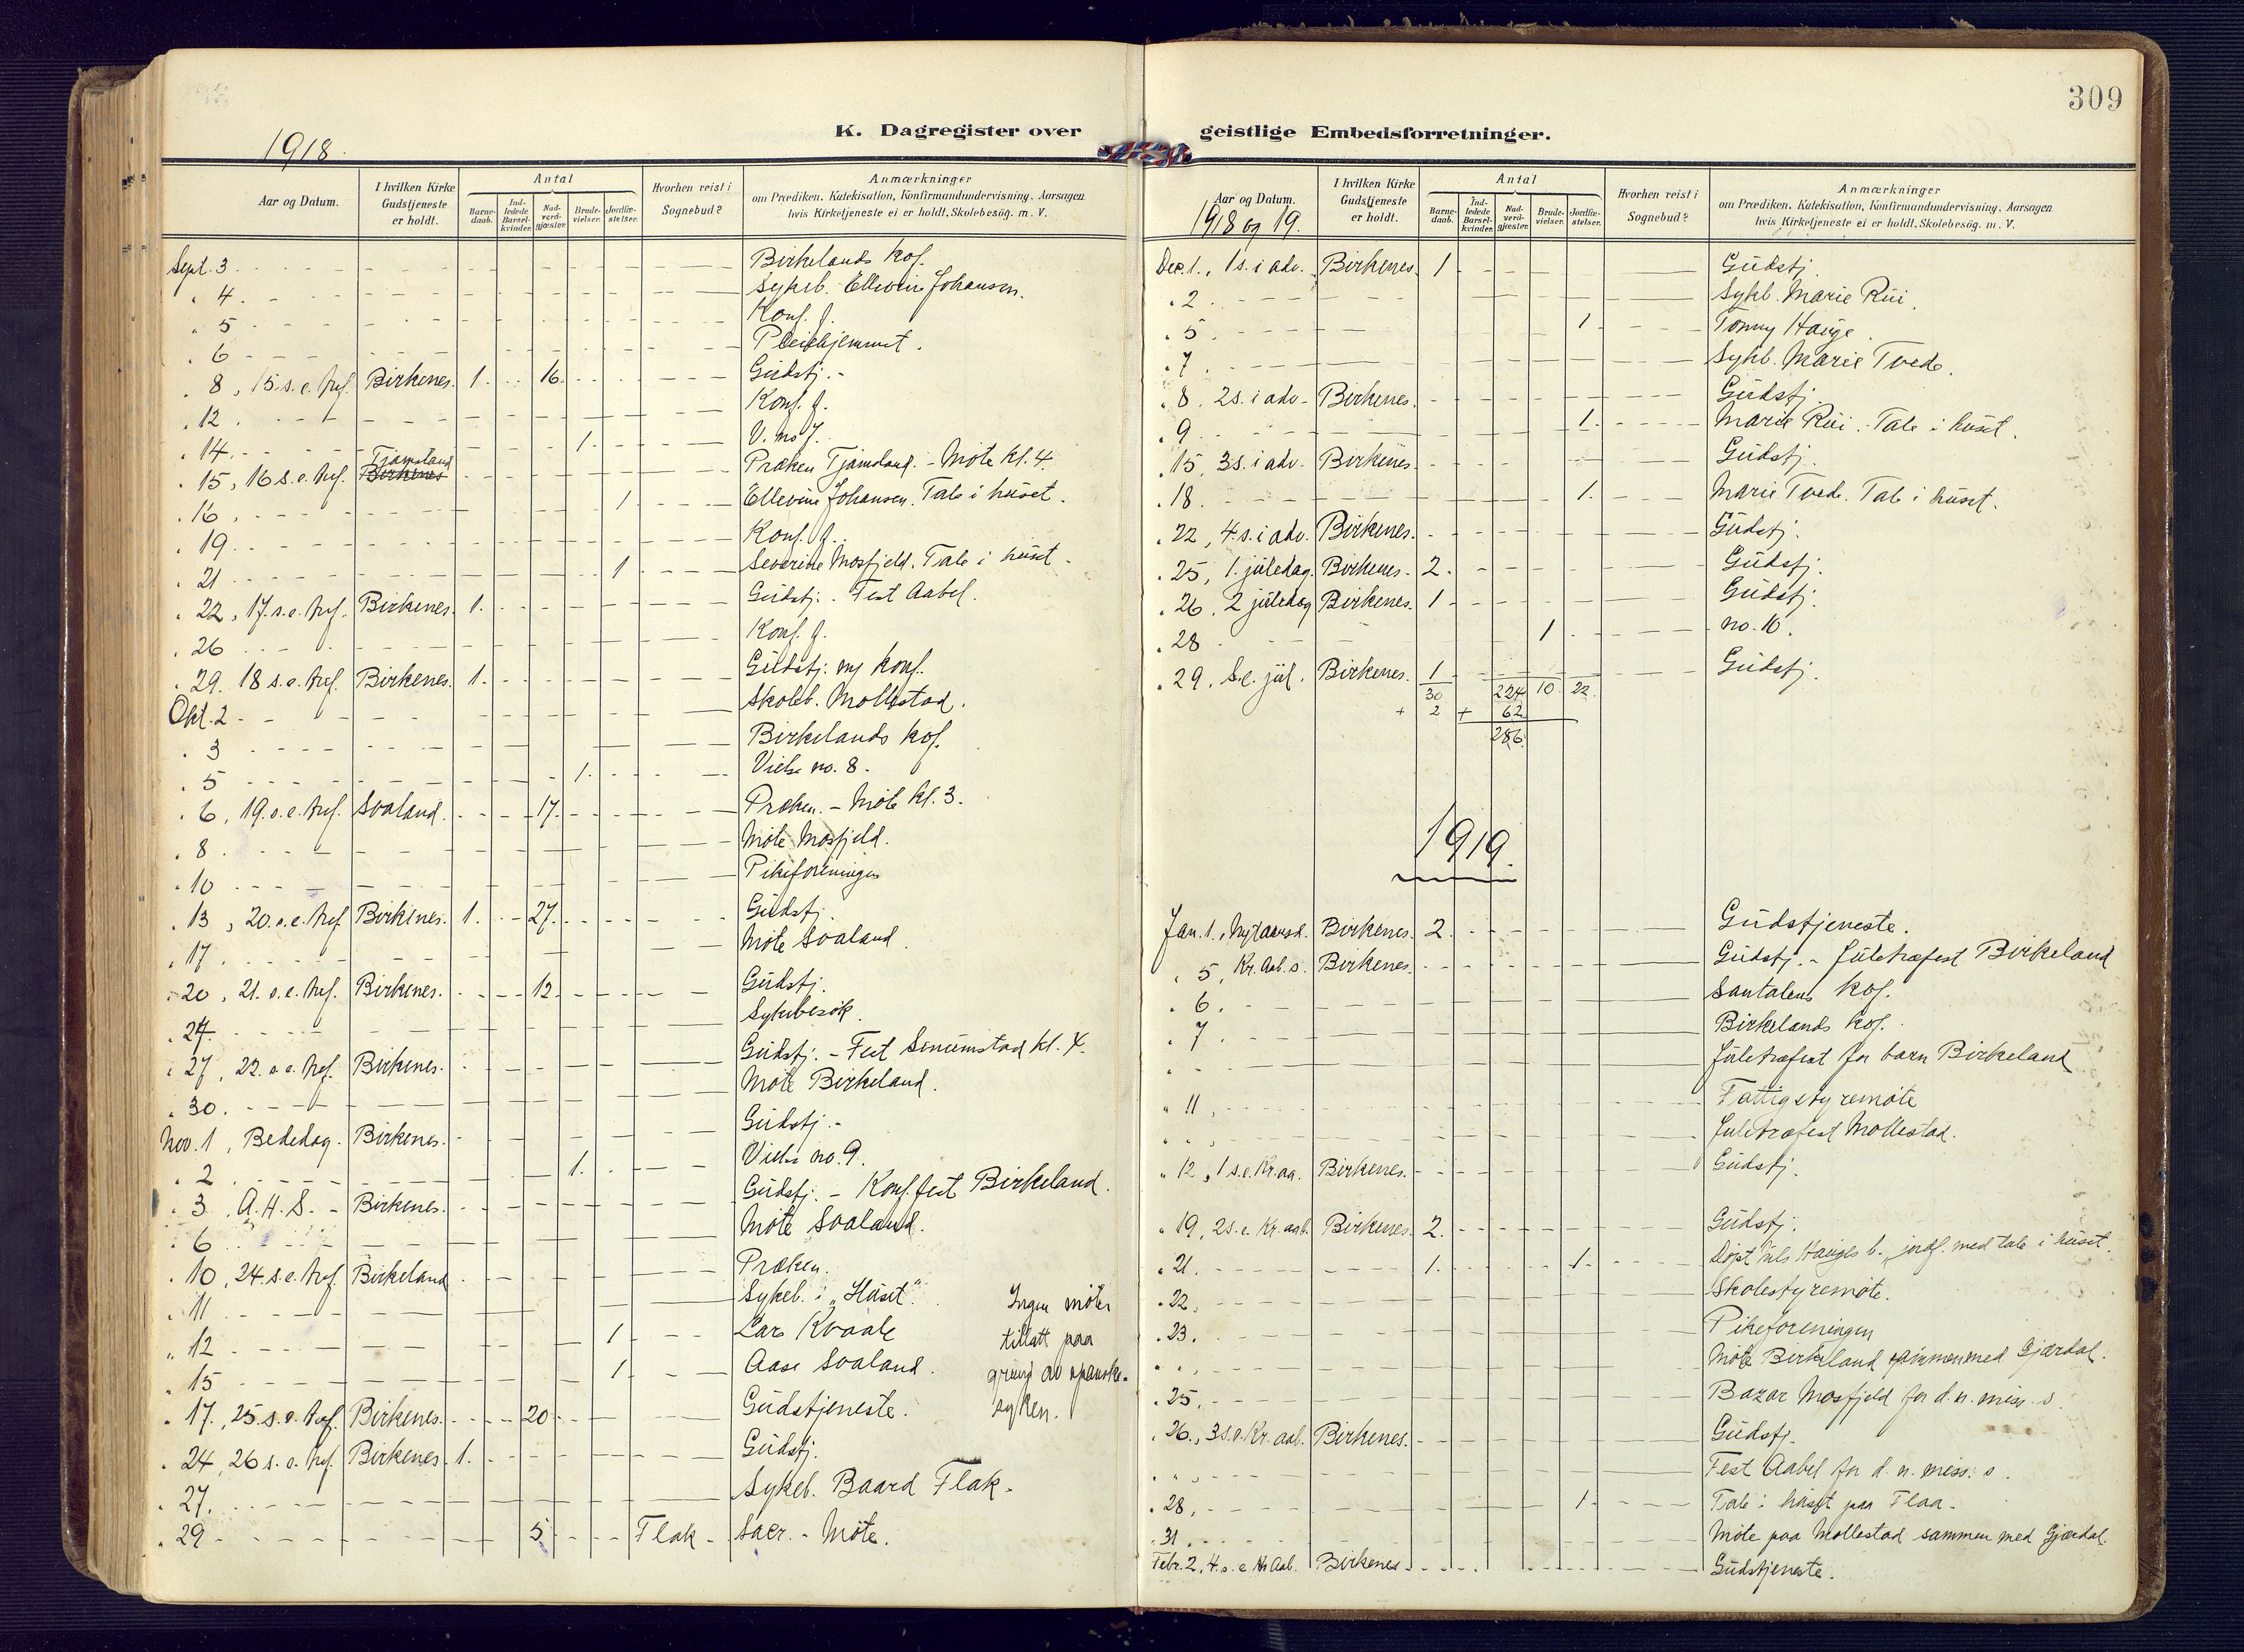 309
K. Dagregister over geistlige Embedsforretninger.
1918.
Aar og Datum.
I hvilken Kirke Gudstjeneste er holdt.
Antal
Barne-daab.
Ind-ledede Barsel-kvinder.
Nad-verd-gjæster.
Brude-vielser.
Jordfæ-stelser.
Hvorhen reist i Sognebud?
Anmærkninger
om Prædiken, Katekisation, Konfirmandundervisning, Aarsagen
hvis Kirketjeneste ei er holdt, Skolebesög. m. V.
Sept. 3 Birkelands kof.
" 4 Sykeb. Ellevine Johansen.
" 5 Konf. f.
" 6 Pleiehjemmet.
" 8, 15 s. e. tref. Birkenes. 1. 16. Gudstj. -
" 12. Konf. f.
" 14. 1. V. no 7.
" 15, 16 s. e. tref. Tjamsland Birkenes Præken Tjamsland. - Møte kl. 4.
" 16, 1 Ellevine Johansen. Tale i huset.
" 19. Konf. f.
" 21 1 Severine Mosfjeld. Tale i huset.
" 22, 17. s. e. tref. Birkenes. 1. Gudstj. - Fest Aabel.
" 26 Konf. f.
" 29. 18 s. e. tref. Birkenes. 1. Gudstj. ny konf.
Okt. 2 Skoleb. Mollestad.
" 3 Birkelands kof.
" 5 1. Vielse no. 8.
" 6, 19. s. e. tref. Svaland. 17. Præken. - Møte kl. 3.
" 8. Møte Mosfjeld.
" 10 Pikeforeningen
" 13, 20. s. e. tref. Birkenes. 1. 27. Gudstj.
" 17. Møte Svaland.
" 20, 21. s. e. tref. Birkenes. 12. Gudstj.
" 24. Sykebesøk.
" 27, 22. s. e. tref. Birkenes. Gudstj. - Fest Senumstad kl. 4.
" 30. Møte Birkeland.
Nov. 1, Bededag. Birkenes. Gudstj. -
" 2 1. Vielse no. 9.
" 3. A. H. S. - Birkenes. Gudstj. - Konf. fest Birkeland.
" 6 Møte Svaland.
" 10, 24. s. e. tref. Birkeland Præken.
" 11 Sykeb. i "Huset". Ingen møter
" 12 1 Lars Kvaale tillatt paa
" 15 1 Aase Svaland. grund av spanske-
" 17., 25. s. e. tref. Birkenes. 20 Gudstjeneste. syken.
" 24, 26 s. e. tref. Birkenes 1. Gudstj.
" 27. Sykeb. Baard Flak.
" 29 5 Flak - Sacr. - Møte.
Aar og Datum.
1918 og 19.
I hvilken Kirke Gudstjeneste er holdt.
Antal
Barne-daab.
Ind-ledede Barsel-kvinder.
Nad-verd-gjæster.
Brude-vielser.
Jordfæ-stelser.
Hvorhen reist i Sognebud?
Anmærkninger
om Prædiken, Katekisation, Konfirmandundervisning, Aarsagen
hvis Kirketjeneste ei er holdt, Skolebesög. m. V.
Dec. 1., 1 s. i adv. Birkenes. 1 Gudstj.
" 2 Sykb. Marie Rui.
" 5. 1. Tomny Hauge.
" 7. Sykb. Marie Tvede.
" 8. 2 s. i adv. Birkenes. Gudstj.
" 9 1. Marie Rui. Tale i huset.
" 15, 3 s. i adv. Birkenes. Gudstj.
" 18. 1. Marie Tvede. Tale i huset.
" 22, 4. s. i adv. Birkenes. Gudstj.
" 25, 1. juledag. Birkenes. 2. Gudstj.
" 26, 2 juledag Birkenes. 1 Gudstj.
" 28 1 no. 10.
" 29. S. e. jul. Birkenes. 1 Gudstj.
30 224 10. 22.
+ 2 + 62
286.
1919.
Jan. 1., Nytaarsd. Birkenes. 2. Gudstjeneste.
" 5, Kr. Aab. s. Birkenes. Gudstj. - Juletræfest Birkeland
" 6. Santalens kof.
" 7. Birkelands kof.
" Juletræfest for barn Birkeland
" 11, Fattigstyremøte
" " , Juletræfest Mollestad.
" 12, 1 s. e. Kr. aa. Birkenes. Gudstj.
" 19, 2 s. e. Kr. aab. Birkenes. 2. Gudstj.
" 21. 1. 1. Døpt Nils Hauges b., jordf. med tale i huset.
" 22, Skolestyremøte.
" 23. Pikeforeningen
" " , Møte Birkeland sammen med Gjærdal.
" 25. Bazar Mosfjeld for d. n. miss. s.
" 26., 3 s. e. Kr. aab. Birkenes. Gudstj.
" " , Fest Aabel for d. n. miss. s.
" 28, 1. Tale i huset paa Flaa.
" 31. Møte paa Mollestad sammen med Gjærdal.
Febr. 2, 4. s. e Kr Aab. Birkenes. Gudstjeneste.